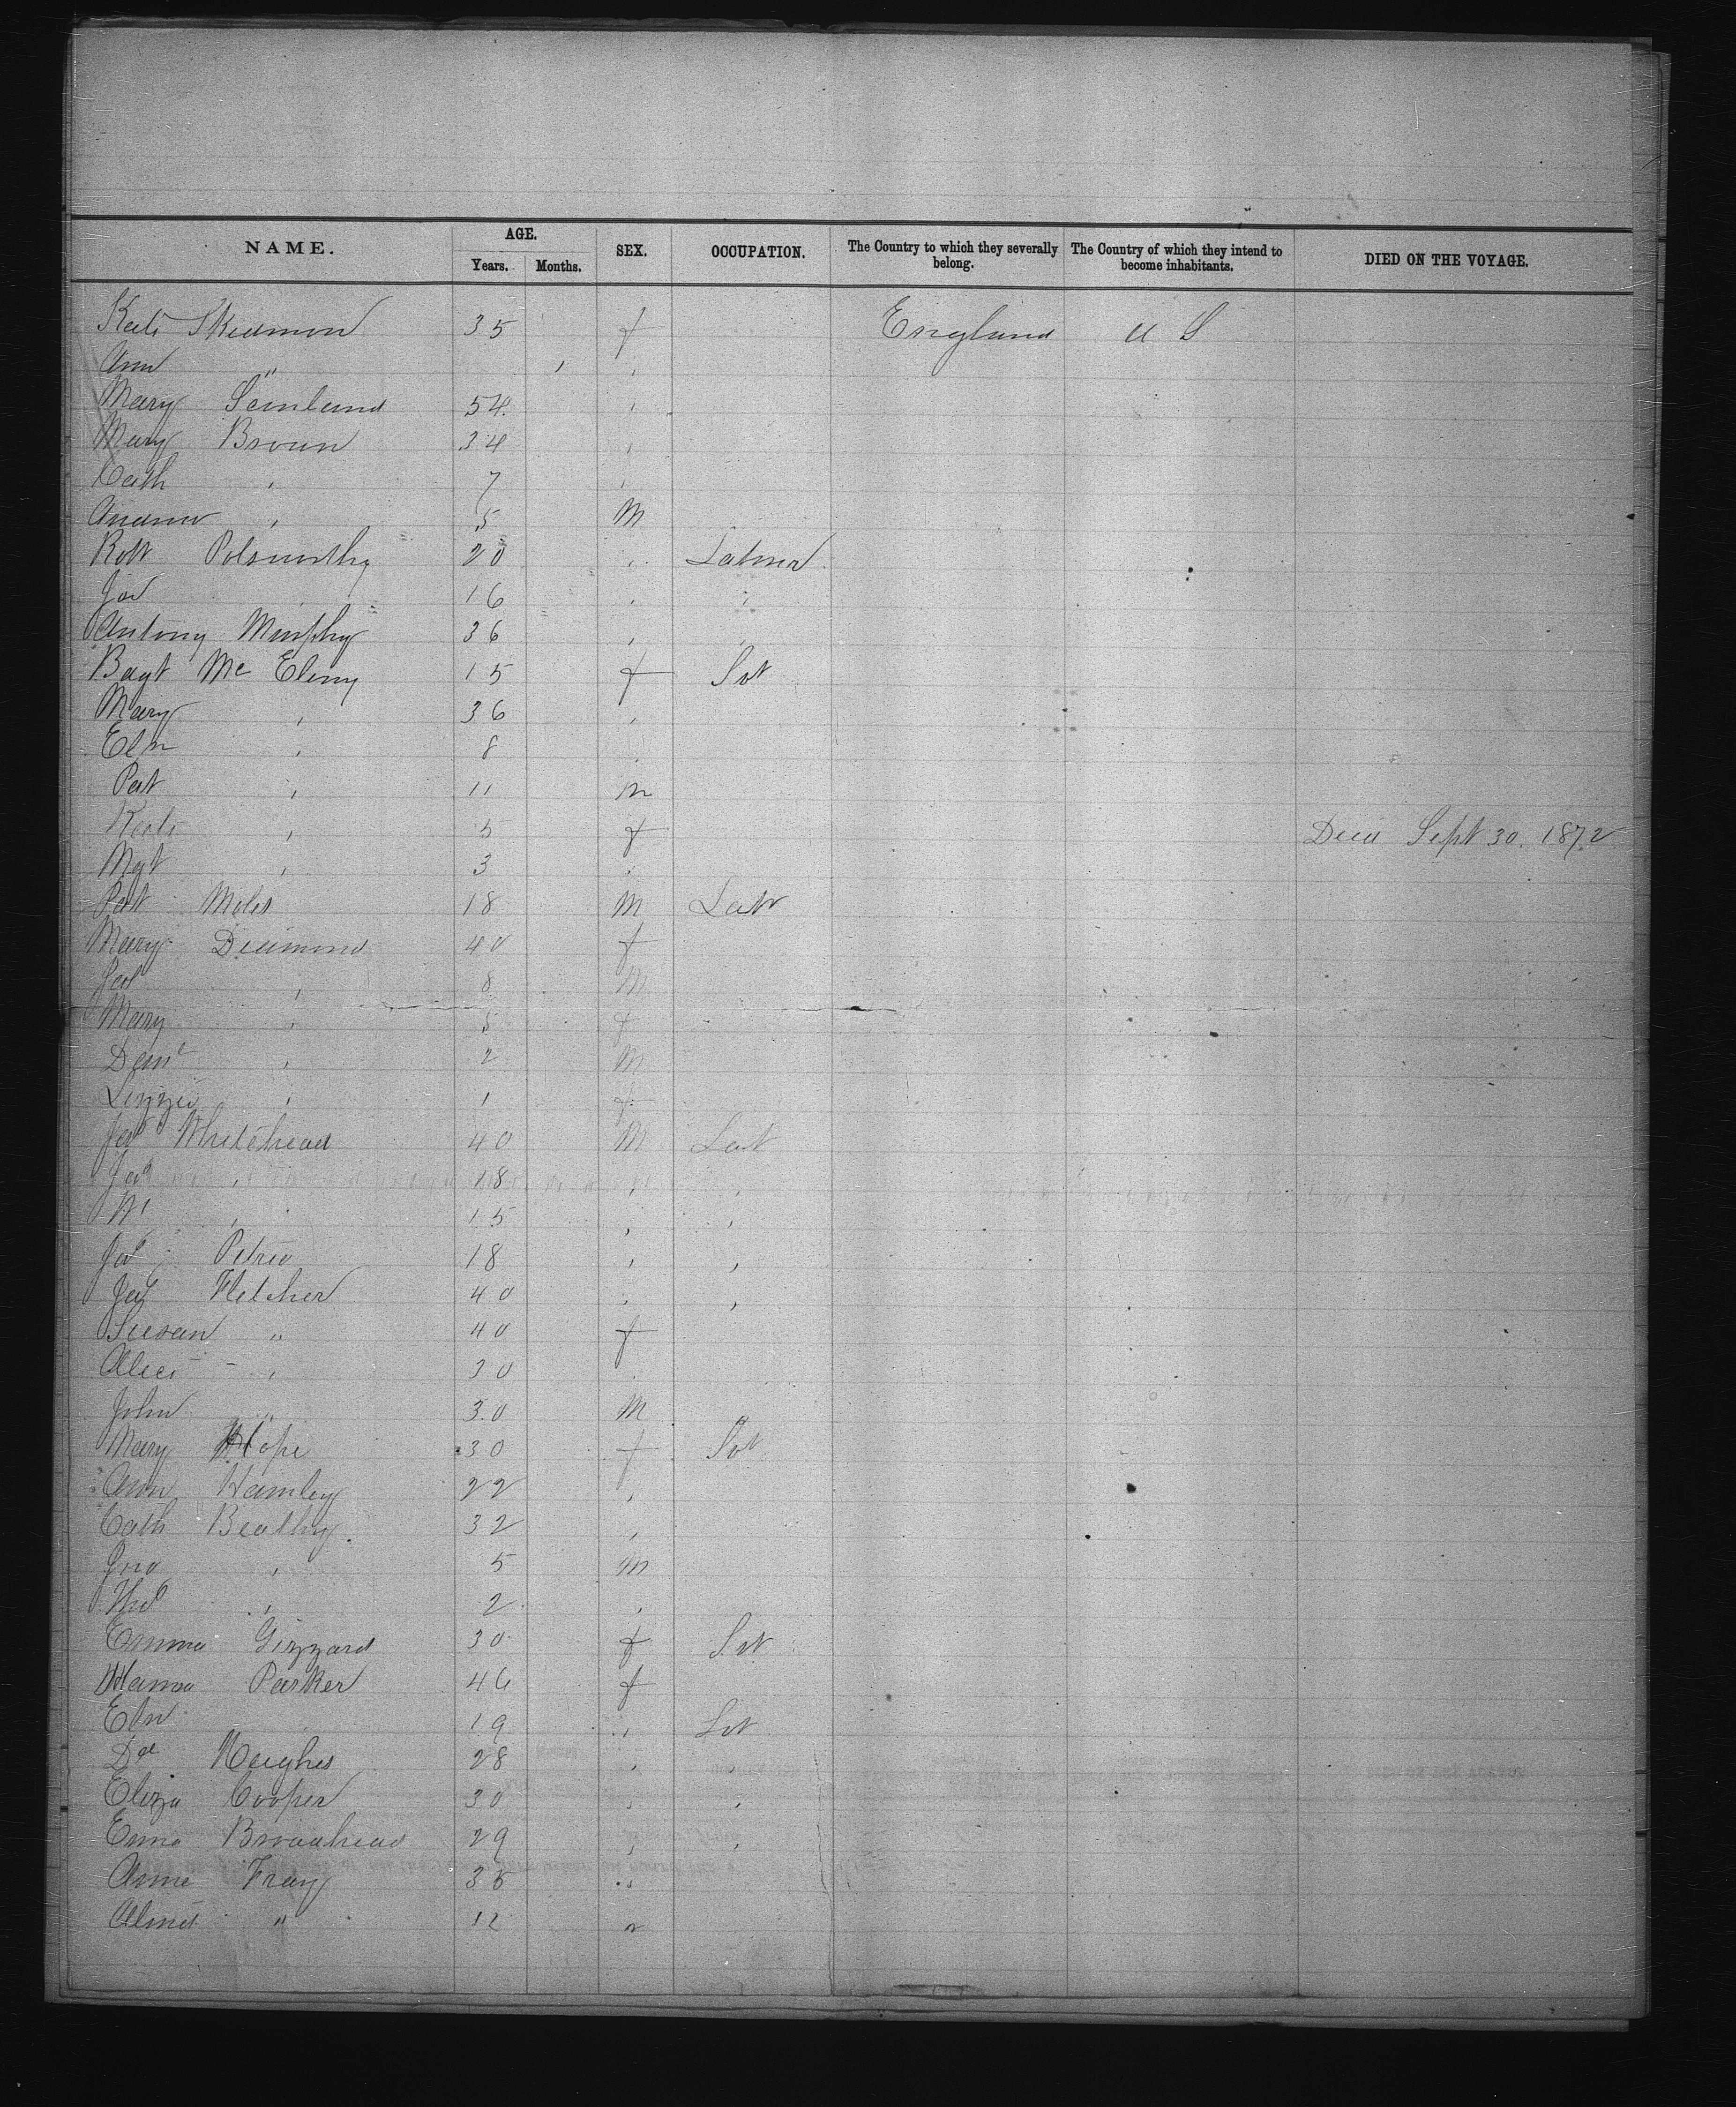 NAME. AGE. SEX. OCCUPATION. The Country to which they severally belong. The Country of which they intend to become inhabitants. DIED ON THE VOYAGE.
Years. Months.
Kate Skidmon 35 f England U S
Ann "
Mary 54
Mary Brown 34
Cath " 7
Andrew " 5 M
Robt Polsworthy 20 " Laborer
Jas 16 " "
Antony Murphy 36 "
Bagt Mc Eleny 15 f Svt
Mary " 36 "
Eln " 8
Pat " 11 m
Kate " 5 f Died Sept 30. 1872
Mgt " 3 "
Pat Moles 18 M Labr
Mary Diamond 40 f
Jas " 8 M
Mary " 5 f
Danl " 2 M
Lizzie " 1 f
Jas Whitehead 40 M Lab
Jas " 18 " "
Wm " 15 " "
Jas Petrie 18 " "
Jas Fletcher 40 " "
Susan " 40 f
Alice " 30
John " 30 M
Mary Hope 30 f Svt
Ann Hamley 22 "
Cath Beathy 32 "
Jno " 5 M
Thos " 2 "
Emma Gizzard 30 f Svt
Hanna Parker 46 f
Eln 19 " Svt
Dd Hughes 28 "
Eliza Cooper 30 " "
Emma Broadhead 29 " "
Anne Fray 35 "
" 12